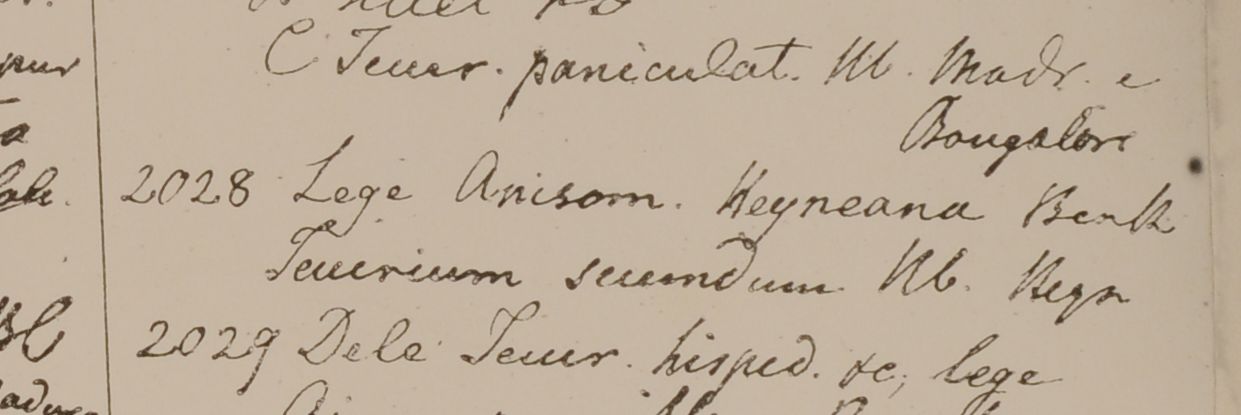 C Teucr. paniculat. Hb. Madr. e
Bangalore
2028 Lege Anisom. Heyneana Benth
Teucrium secundum Hb. Heyn
2029 Dele Teucr. hispid. &c, lege